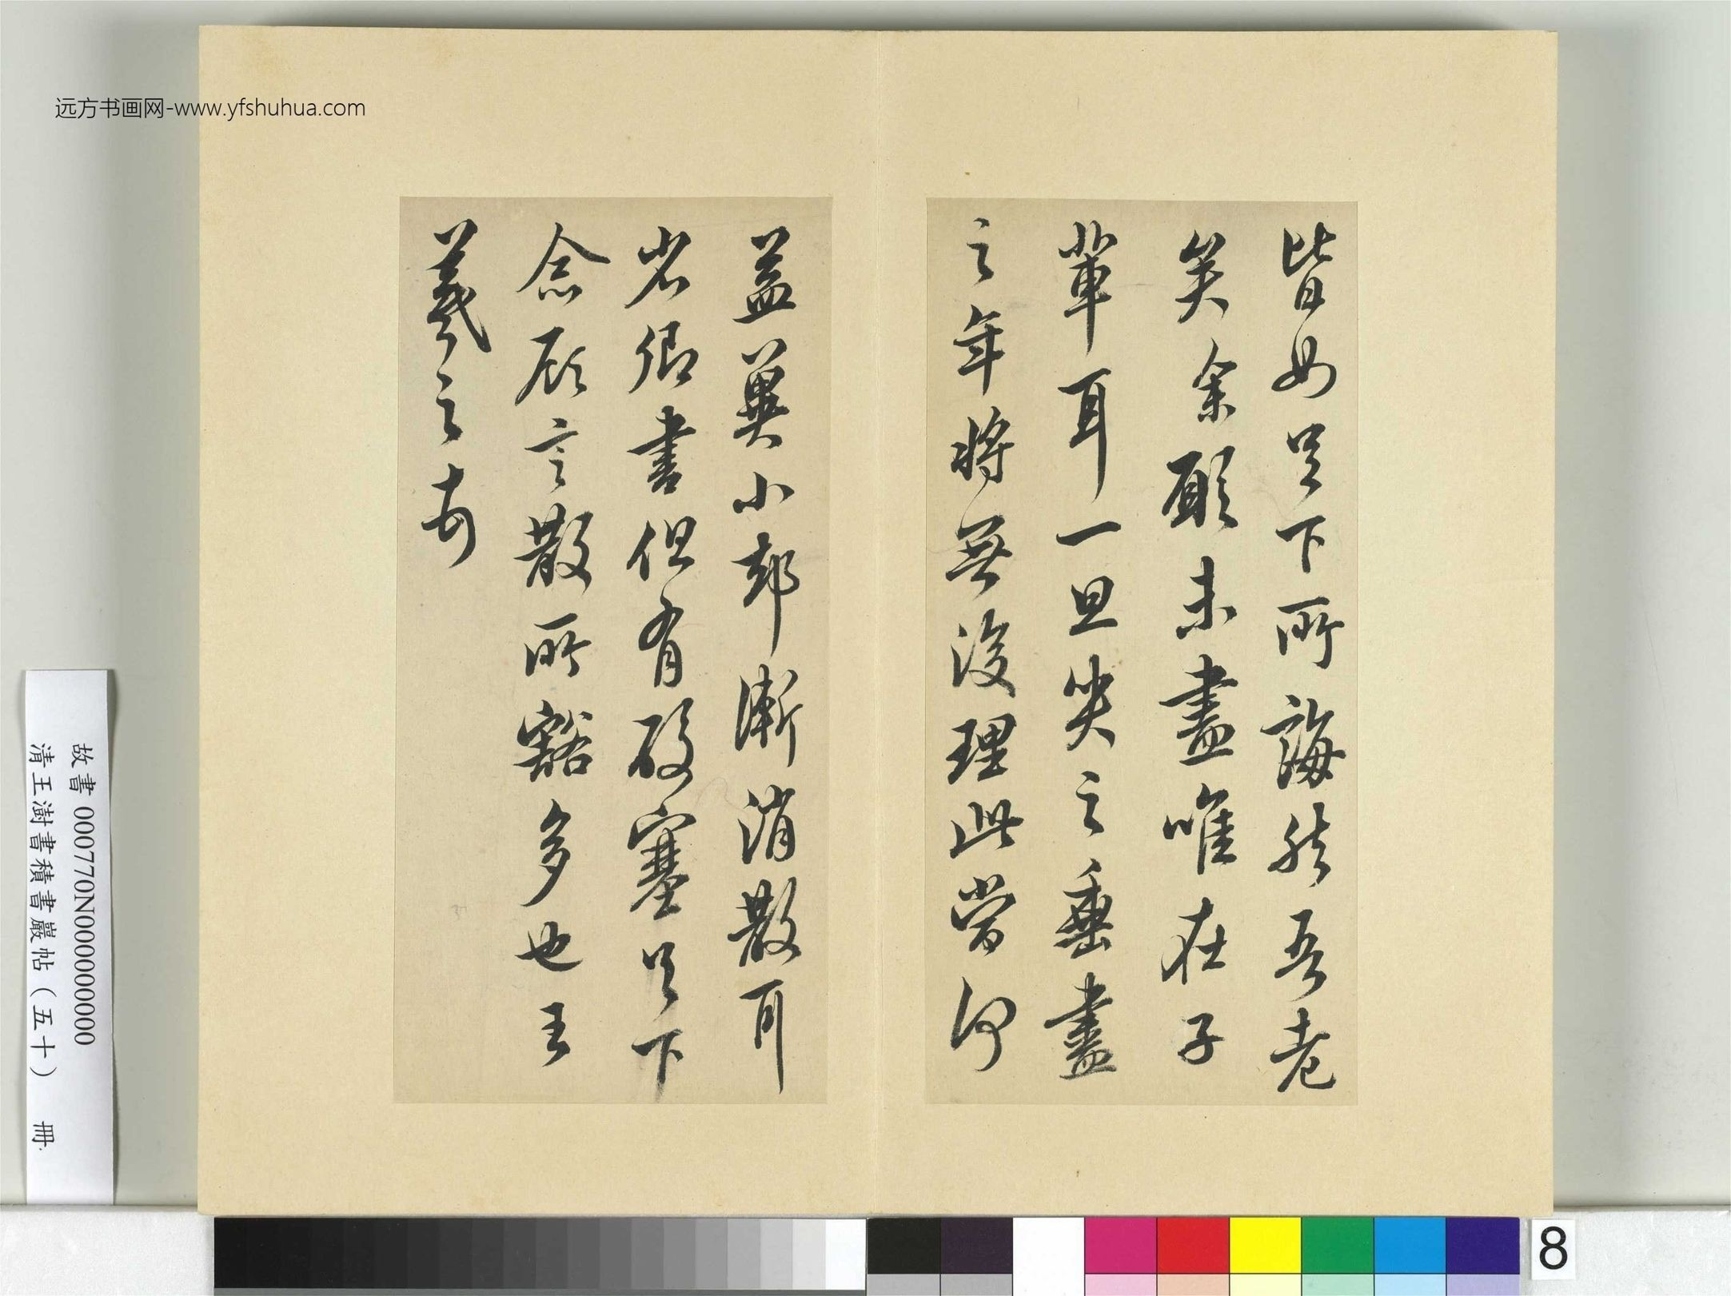 皆如足下所誨然吾老
矣余願未盡唯在子
輩耳一旦哭之垂盡
之年將無復理此當何
益冀小却漸消散耳
省卿書但有酸塞足下
念顧言散所豁多也王
羲之
远方书画网-www.yfshuhua.com
故書 000770N000000000
清王澍書積書巖帖（五十） 冊
8